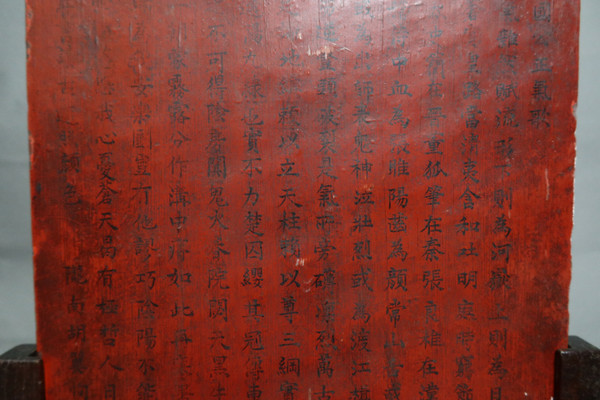 正氣歌
雜然賦流形下則為河嶽上則為日
皇路當清夷含和吐明庭時窮節
史簡在晉董狐筆在秦張良椎在漢
侍中血為張睢陽齒為顏常山舌或
為出師表鬼神泣壯烈或為渡江楫
逆豎頭破裂是氣所旁礡凜烈萬古
地維賴以立天柱賴以尊三綱實
九也實不力楚囚纓其冠傳車
不可得陰房闃鬼火春院閟天黑牛
蒙霧露分作溝中瘠如此再寒
安樂國豈有他謬巧陰陽不能
我心憂蒼天曷有極哲人日
我顏色 隴南胡